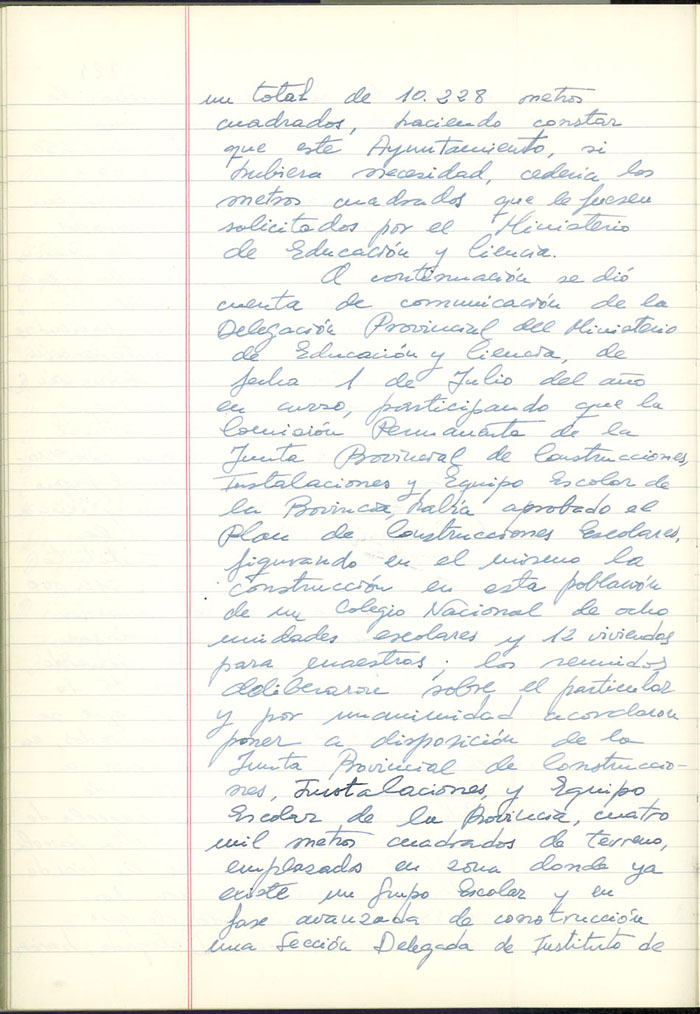 un total de 10.228 metros
cuadrados, haciendo constar
que este Ayuntamiento, si
hubiera necesidad, cedería los
metros cuadrados que le fuesen
solicitados por el Ministerio
de Educación y Ciencia.
A continuación se dió
cuenta de comunicación de la
Delegación Provincial del Ministerio
de Educación y Ciencia, de
fecha 1 de Julio del año
en curso, participando que la
Comisión Permanante de la
Junta Provincial de Construcciones,
Instalaciones y Equipo Escolar de
la Provincia, había aprobado el
Plan de Construcciones Escolares,
figurando en el mismo la
construcción en esta población
de un Colegio Nacional de ocho
unidades escolares y 12 viviendas
para maestros; los reunidos
deliberaron sobre el particular
y por unanimidad acordaron
poner a disposición de la
Junta Provincial de Construccio-
nes, Instalaciones, y Equipo
Escolar de la Provincia, cuatro
mil metros cuadrados de terreno,
emplazados en zona donde ya
existe un Grupo Escolar y en
fase avanzada de construcción
una Sección Delegada de Instituto de